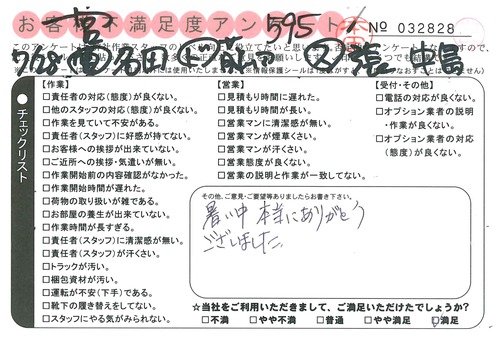 お客様不満足度アンケート
595
No 032828
【作業】
□責任者の対応(態度)が良くない。
□他のスタッフの対応(態度)が良くない。
□作業を見ていて不安がある。
□責任者(スタッフ)に好感が持てない。
□お客様への挨拶が出来ていない。
□ご近所への挨拶・気遣いが無い。
□作業開始前の内容確認がなかった。
□作業開始時間が遅れた。
□荷物の取り扱いが雑である。
□お部屋の養生が出来ていない。
□作業時間が長すぎる。
□責任者(スタッフ)に清潔感が無い。
□責任者(スタッフ)が汗くさい。
□トラックが汚い。
□梱包資材が汚い。
□運転が不安(下手)である。
□靴下の履き替えをしてない。
□スタッフにやる気がみられない。
【営業】
□見積もり時間に遅れた。
□見積もり時間が長い。
□営業マンに清潔感が無い。
□営業マンが煙草くさい。
□営業マンが汗くさい。
□営業態度が良くない。
□営業の説明と作業が一致してない。
【受付・その他】
□電話の対応が良くない。
□オプション業者の説明
・作業が良くない。
□オプション業者の対応
(態度)が良くない。
チェックリスト
その他、ご意見・ご要望等ありましたらお書き下さい。
暑い中 本当にありがとう
ございました。
☆当社をご利用いただきまして、ご満足いただけたでしょうか?
□不満 □やや不満 □普通 □やや満足 □満足